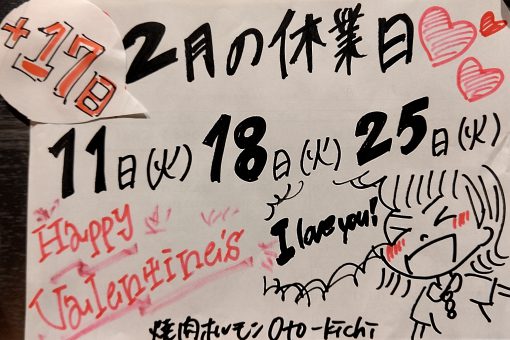 +17日
2月の休業日
11日(火) 18日(火) 25日(火)
Happy
Valentine's
I love you!
焼肉ホルモン Oto-Kichi